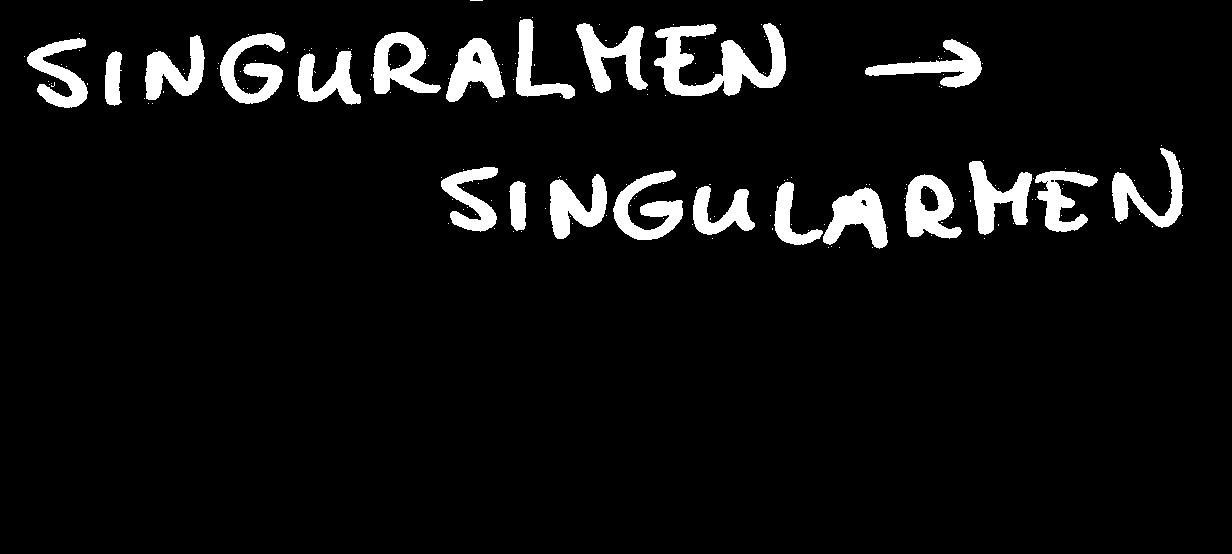 SINGURALMEN →
SINGULARMEN